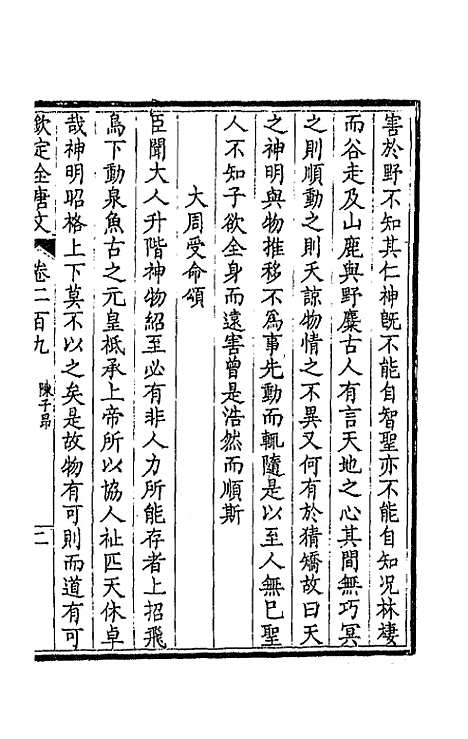 害於野不知其仁神旣不能自智聖亦不能自知况林棲
而谷走及山鹿與野麋古人有言天地之心其間無巧冥
之則順動之則夭諒物情之不異又何有於猜矯故曰天
之神明與物推移不爲事先動而輒隨是以至人無已聖
人不知子欲全身而遠害曾是浩然而順斯
大周受命頌
臣聞大人升階神物紹至必有非人力所能存者上招飛
鳥下動泉魚古之元皇祗承上帝所以協人祉匹天休卓
哉神明昭格上下莫不以之矣是故物有可則而道有可
欽定全唐文 卷二百九 陳子昂 二